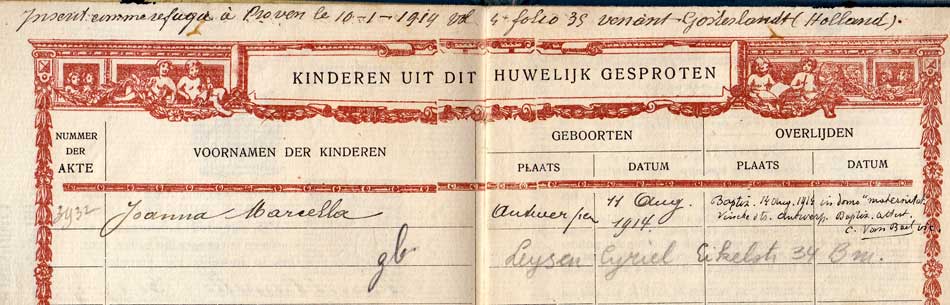 Inscrit comme refugié à Proven le 10-1-1919 vol 4 folio 35 venant Goiterlandt (Holland).
KINDEREN UIT DIT HUWELIJK GESPROTEN
NUMMER DER AKTE
VOORNAMEN DER KINDEREN
GEBOORTEN
OVERLIJDEN
PLAATS
DATUM
PLAATS
DATUM
3932
Joanna Marcella
Antwerpen
11 Aug.
1914.
Baptiz. 14 aug. 1914 in domo "maternitat"
Antwerp. Baptiz. attest.
C. Van Bael vic.
gb
Leysen Cyriel Eikelstr 34 Bm.